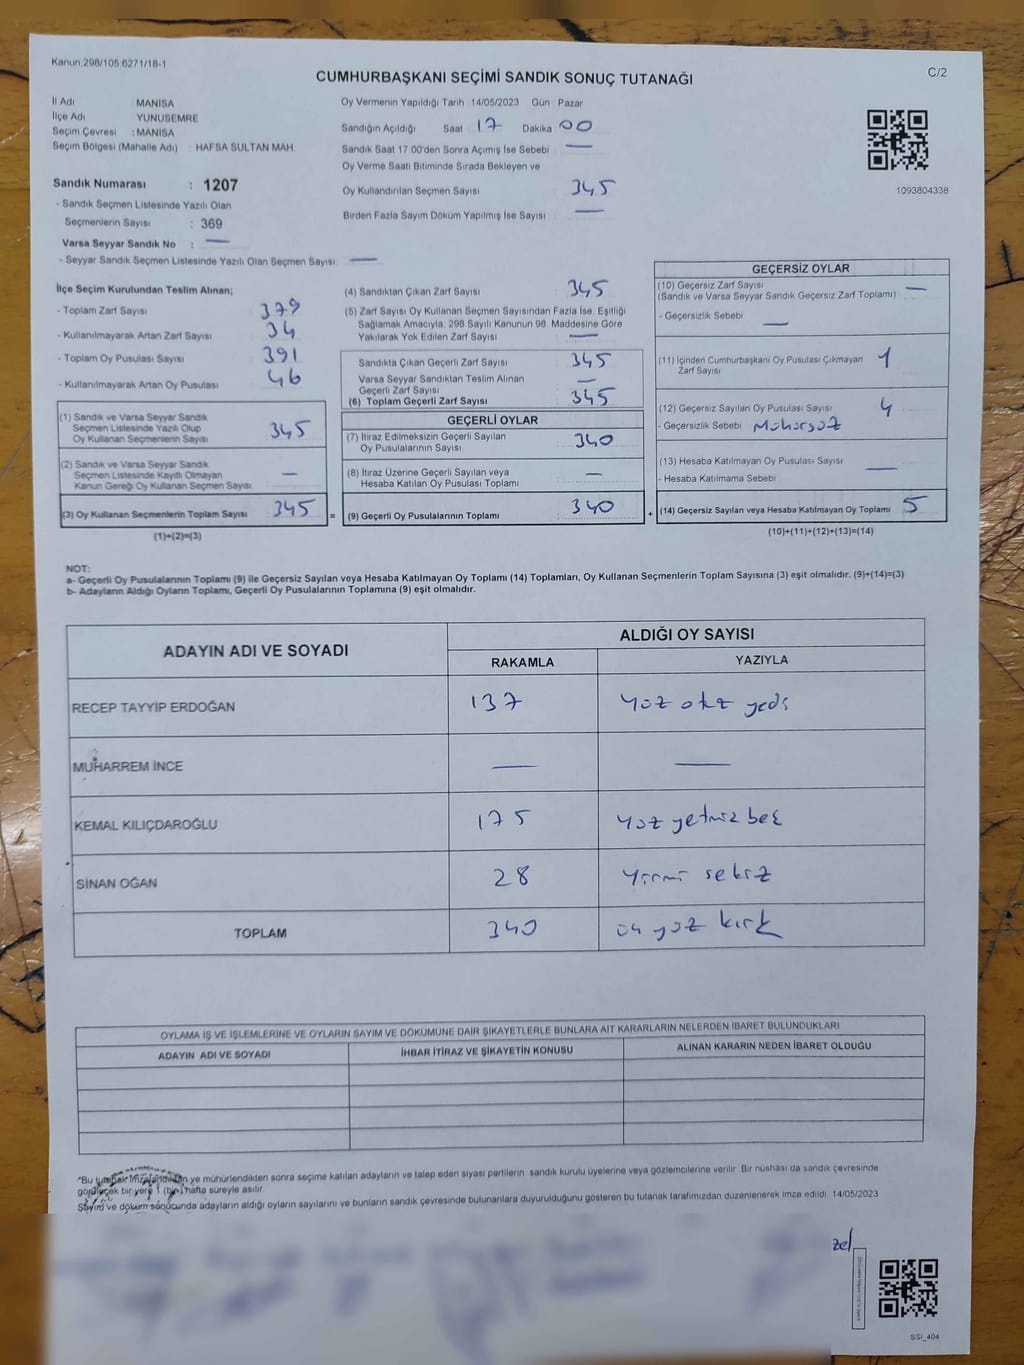 Kanun,298/105,6271/18-1
C/2
CUMHURBAŞKANI SEÇİMİ SANDIK SONUÇ TUTANAĞI
İl Adı : MANİSA
İlçe Adı YUNUSEMRE
Seçim Çevresi : MANİSA
Seçim Bölgesi (Mahalle Adı) : HAFSA SULTAN MAH.
Sandık Numarası : 1207
- Sandık Seçmen Listesinde Yazılı Olan
Seçmenlerin Sayısı : 369
Varsa Seyyar Sandık No : —
- Seyyar Sandık Seçmen Listesinde Yazılı Olan Seçmen Sayısı: —
Oy Vermenin Yapıldığı Tarih 14/05/2023 Gün : Pazar
Sandığın Açıldığı Saat 17 Dakika 00
Sandık Saat 17.00'den Sonra Açılmış İse Sebebi : —
Oy Verme Saati Bitiminde Sırada Bekleyen ve
Oy Kullandırılan Seçmen Sayısı : 345
Birden Fazla Sayım Döküm Yapılmış İse Sayısı : —
1093804338
İlçe Seçim Kurulundan Teslim Alınan;
- Toplam Zarf Sayısı : 379
- Kullanılmayarak Artan Zarf Sayısı : 34
- Toplam Oy Pusulası Sayısı : 391
- Kullanılmayarak Artan Oy Pusulası : 46
(1) Sandık ve Varsa Seyyar Sandık
Seçmen Listesinde Yazılı Olup
Oy Kullanan Seçmenlerin Sayısı : 345
(2) Sandık ve Varsa Seyyar Sandık
Seçmen Listesinde Kayıtlı Olmayan
Kanun Gereği Oy Kullanan Seçmen Sayısı : —
(3) Oy Kullanan Seçmenlerin Toplam Sayısı : 345
(1)+(2)=(3)
=
(4) Sandıktan Çıkan Zarf Sayısı : 345
(5) Zarf Sayısı Oy Kullanan Seçmen Sayısından Fazla İse, Eşitliği
Sağlamak Amacıyla, 298 Sayılı Kanunun 98. Maddesine Göre
Yakılarak Yok Edilen Zarf Sayısı : —
Sandıkta Çıkan Geçerli Zarf Sayısı : 345
Varsa Seyyar Sandıktan Teslim Alınan
Geçerli Zarf Sayısı : —
(6) Toplam Geçerli Zarf Sayısı : 345
GEÇERLİ OYLAR
(7) İtiraz Edilmeksizin Geçerli Sayılan
Oy Pusulalarının Sayısı : 340
(8) İtiraz Üzerine Geçerli Sayılan veya
Hesaba Katılan Oy Pusulası Toplamı : —
(9) Geçerli Oy Pusulalarının Toplamı : 340
+
GEÇERSİZ OYLAR
(10) Geçersiz Zarf Sayısı : —
(Sandık ve Varsa Seyyar Sandık Geçersiz Zarf Toplamı)
- Geçersizlik Sebebi : —
(11) İçinden Cumhurbaşkanı Oy Pusulası Çıkmayan
Zarf Sayısı : 1
(12) Geçersiz Sayılan Oy Pusulası Sayısı : 4
- Geçersizlik Sebebi : Mühürsüz
(13) Hesaba Katılmayan Oy Pusulası Sayısı : —
- Hesaba Katılmama Sebebi :
(14) Geçersiz Sayılan veya Hesaba Katılmayan Oy Toplamı : 5
(10)+(11)+(12)+(13)=(14)
NOT:
a- Geçerli Oy Pusulalarının Toplamı (9) ile Geçersiz Sayılan veya Hesaba Katılmayan Oy Toplamı (14) Toplamları, Oy Kullanan Seçmenlerin Toplam Sayısına (3) eşit olmalıdır. (9)+(14)=(3)
b- Adayların Aldığı Oyların Toplamı, Geçerli Oy Pusulalarının Toplamına (9) eşit olmalıdır.
ADAYIN ADI VE SOYADI
ALDIĞI OY SAYISI
RAKAMLA YAZIYLA
RECEP TAYYİP ERDOĞAN 137 yüz otz yedi
MUHARREM İNCE — —
KEMAL KILIÇDAROĞLU 175 yüz yetmiz beş
SİNAN OĞAN 28 yirmi sekiz
TOPLAM 340 üç yüz kırk
OYLAMA İŞ VE İŞLEMLERİNE VE OYLARIN SAYIM VE DÖKÜMÜNE DAİR ŞİKAYETLERLE BUNLARA AİT KARARLARIN NELERDEN İBARET BULUNDUKLARI
ADAYIN ADI VE SOYADI İHBAR İTİRAZ VE ŞİKAYETİN KONUSU ALINAN KARARIN NEDEN İBARET OLDUĞU
*Bu tutanak imzalandıktan ve mühürlendikten sonra seçime katılan adayların ve talep eden siyasi partilerin sandık kurulu üyelerine veya gözlemcilerine verilir. Bir nüshası da sandık çevresinde
görülecek bir yere 1 (bir) hafta süreyle asılır.
Sayım ve döküm sonucunda adayların aldığı oyların sayılarını ve bunların sandık çevresinde bulunanlara duyurulduğunu gösteren bu tutanak tarafımızdan düzenlenerek imza edildi. 14/05/2023
zel
SSI_404